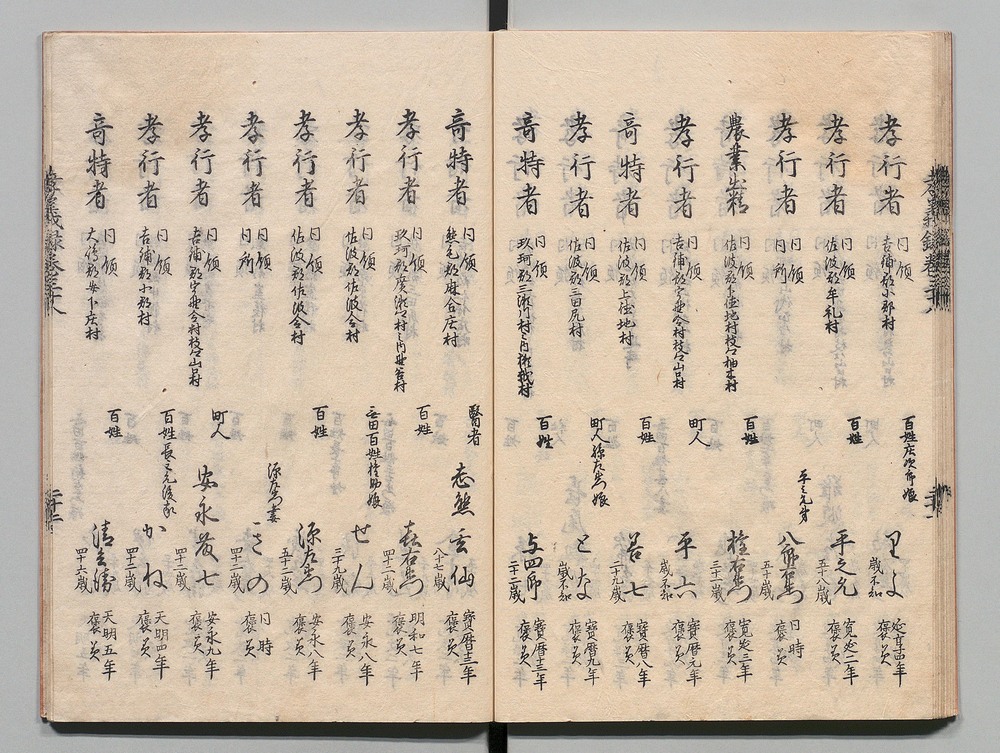 孝行者 同領 吉敷郡小郡村 百姓庄次郎娘 里よ 歳不知 延享四年 褒美
孝行者 同領 佐波郡牟礼村 百姓 平之允 五十八歳 寛延二年 褒美
孝行者 同領 同所 平之允弟 八郎右衛門 五十歳 同時 褒美
農業出精 同領 佐波郡下徳地村枝郷柚木村 百姓 権右衛門 三十一歳 寛延三年 褒美
孝行者 同領 吉敷郡宇野令村枝郷山口村 町人 平六 歳不知 寶暦元年 褒美
奇特者 同領 佐波郡上徳地村 百姓 善七 二十九歳 寶暦八年 褒美
孝行者 同領 佐波郡三田尻村 町人孫左衛門娘 とな 歳不知 寶暦九年 褒美
奇特者 同領 玖珂郡三瀬川村之内 百姓 与四郎 二十二歳 寶暦十三年 褒美
奇特者 同領 熊毛郡麻合庄村 醫者 志熊玄仙 八十七歳 寶暦十三年 褒美
孝行者 同領 玖珂郡廣瀬村之内野谷村 百姓 喜右衛門 四十二歳 明和七年 褒美
孝行者 同領 佐波郡佐波令村 無田百姓権助娘 せん 三十九歳 安永八年 褒美
孝行者 同領 佐波郡佐波令村 百姓 源左衛門 五十二歳 安永八年 褒美
孝行者 同領 同所 源左衛門妻 さの 四十二歳 同時 褒美
孝行者 同領 吉敷郡宇野令村枝郷山口村 町人 安永藤七 四十二歳 安永九年 褒美
孝行者 同領 吉敷郡小郡村 百姓長之允後家 かね 四十二歳 天明四年 褒美
奇特者 同領 大嶋郡安下庄村 百姓 清兵衛 四十六歳 天明五年 褒美